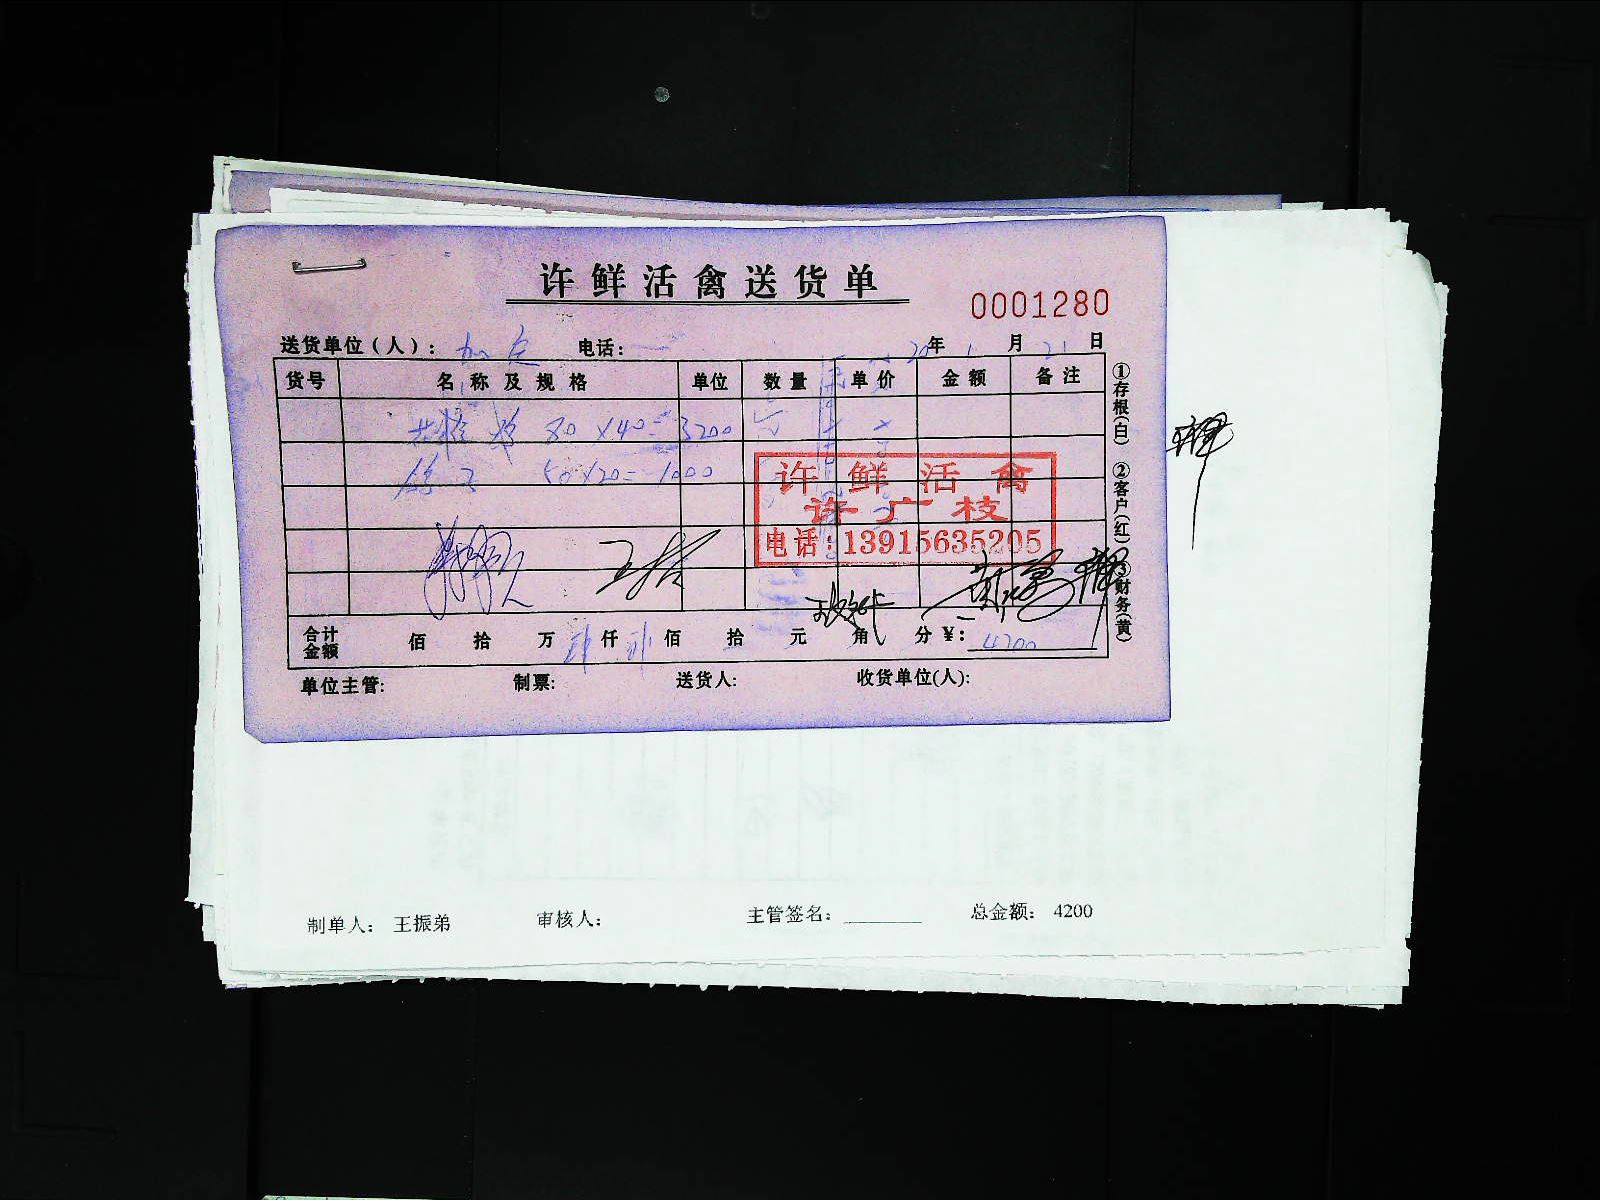 许鲜活禽送货单
0001280
送货单位(人): 电话: 20年1月21日
货号 名称及规格 单位 数量 单价 金额 备注
80×40=3200
鸽子 50×20=1000
许鲜活禽
许广枝
电话:13915635205
合计金额 佰 拾 万 仟 佰 拾 元 角 分 ¥: 4200
单位主管: 制票: 送货人: 收货单位(人):
①存根(白) ②客户(红) ③财务(黄)
制单人: 王振弟 审核人: 主管签名: 总金额: 4200